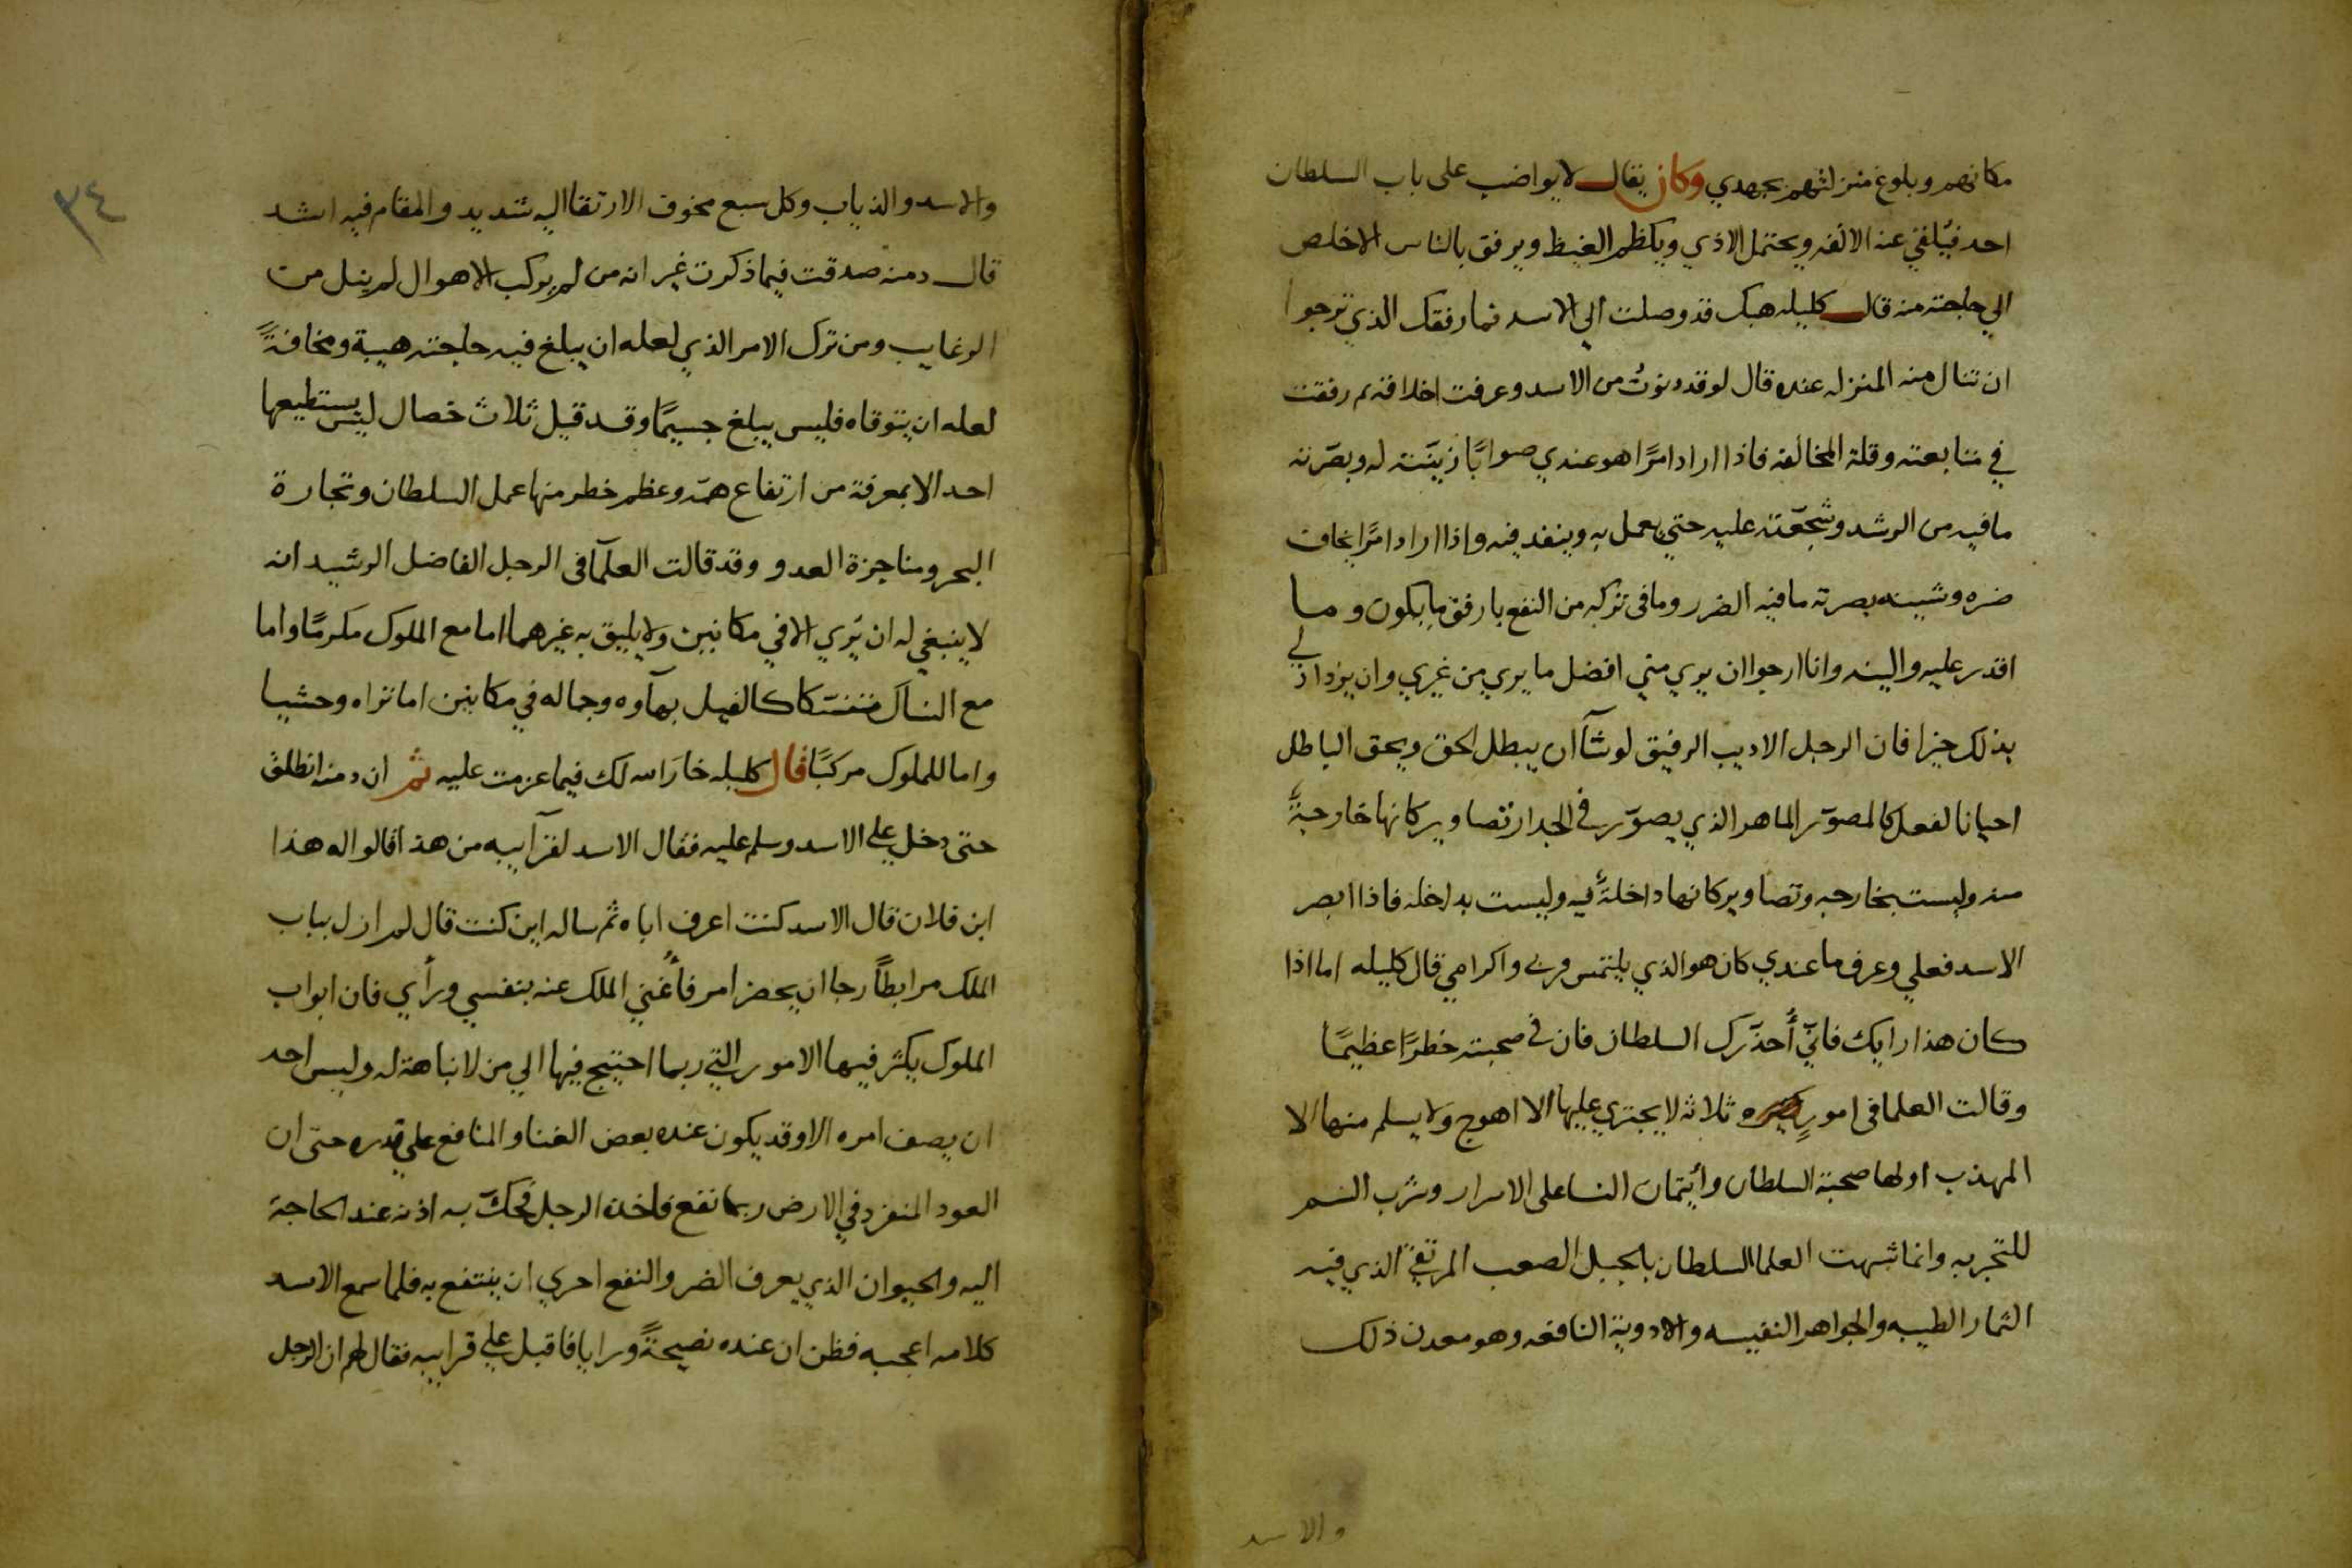 مكانهم وبلوغ منزلتهم بجهدي وكان يقال لا يواضب على باب السلطان
احد فيُلقي عنه الانفه ويحتمل الاذي ويكظم الغيظ ويرفق بالناس الاخلص
الي حاجته منه قال كليله هبك قد وصلت الي الاسد فما رفقك الذي ترجوا
ان تنال منه المنزله عنده قال لو قد دنوتُ من الاسد وعرفت اخلاقه رفقت
في متابعته وقلة المخالفه فاذا اراد امرًا هو عندي صوابًا زينّته له وبصّرته
ما فيه من الرشد وشجّعته عليه حتي يعمل به وينفد فيه واذا اراد امرًا يخاف
ضره وشينه بصرته ما فيه الضرر وما في تركه من النفع بارفق ما يكون وما
اقدر عليه والينه وانا ارجوا ان يري مني افضل ما يري من غيري وان يزداد لي
بذلك خيرا فان الرجل الاديب الرفيق لو شآ ان يبطل الحق ويحق الباطل
احيانا لفعل كالمصوّر الماهر الذي يصوّر في الجدار تصاوير كانها خارجةً
منه وليست بخارجه وتصاوير كانها داخلةً فيه وليست بداخله فاذا ابصر
الاسد فعلي وعرف ما عندي كان هو الذي يلتمس قربي واكرامي قال كليله اما اذا
كان هذا رايك فاني أُحذّرك السلطان فان في صحبته خطرًا عظيمًا
وقالت العلما في امورٍ ثلاثه لا يجتري عليها الا اهوج ولا يسلم منها الا
المهذب اولها صحبة السلطان وأيتمان النسا على الاسرار وشرب السم
للتجربه وانما شبهت العلما السلطان بالجبل الصعب المرتقي الذي فيه
الثمار الطيبه والجواهر النفيسه والادوية النافعه وهو معدن ذلك
والاسد
٣٤
والاسد والذياب وكل سبع مخوف الارتقا اليه شديد والمقام فيه اشد
قال دمنه صدقت فيما ذكرت غير انه من لم يركب الاهوال لم ينل من
الرغايب ومن ترك الامر الذي لعله ان يبلغ فيه حاجته هيبة ومخافةً
لعله ان يتوقاه فليس يبلغ جسيمًا وقد قيل ثلاث خصال ليس يستطيعها
احد الا بمعرفة من ارتفاع همّه وعظم خطر منها عمل السلطان وتجارة
البحر ومناجزة العدو وقد قالت العلمآ في الرجل الفاضل الرشيد انه
لا ينبغي له ان يُري الا في مكانين ولا يليق به غيرهما اما مع الملوك مكرمًا واما
مع النساك متنسكا كالفيل بهآوه وجماله في مكانين اما تراه وحشيا
واما للملوك مركبًا قال كليله خارَ الله لك فيما عزمت عليه ثم ان دمنه انطلق
حتى دخل علي الاسد وسلم عليه فقال الاسد لقرآبيه من هذا قالوا له هذا
ابن فلان قال الاسد كنت اعرف اباه ثم ساله اين كنت قال لم ازل بباب
الملك مرابطًا رجا ان يحضر امر فأُغني الملك عنه بنفسي ورأي فان ابواب
الملوك يكثر فيها الامور التي ربما احتيج فيها الي من لا نباهة له وليس احد
ان يصف امره الا وقد يكون عنده بعض الغنا والمنافع علي قدره حتى ان
العود المنفرد في الارض ربما نفع فاخذه الرجل فحكّ به اذنه عند الحاجة
اليه والحيوان الذي يعرف الضر والنفع احري ان ينتفع به فلما سمع الاسد
كلامه اعجبه فظن ان عنده نصيحةً ورايا فاقبل علي قرابيه فقال لهم ان الرجل